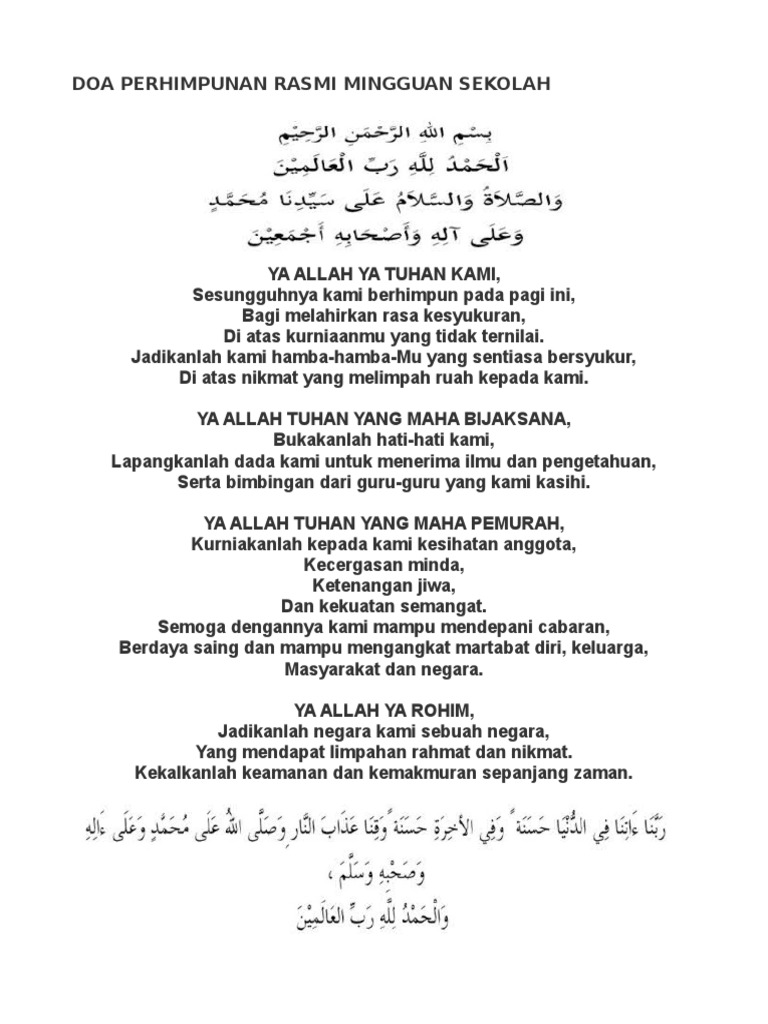 DOA PERHIMPUNAN RASMI MINGGUAN SEKOLAH
بِسْمِ اللهِ الرَّحْمَنِ الرَّحِيْمِ
اَلْحَمْدُ لِلَّهِ رَبِّ الْعَالَمِيْنَ
وَالصَّلاَةُ وَالسَّلاَمُ عَلَى سَيِّدِنَا مُحَمَّدٍ
وَعَلَى آلِهِ وَأَصْحَابِهِ أَجْمَعِيْنَ
YA ALLAH YA TUHAN KAMI,
Sesungguhnya kami berhimpun pada pagi ini,
Bagi melahirkan rasa kesyukuran,
Di atas kurniaanmu yang tidak ternilai.
Jadikanlah kami hamba-hamba-Mu yang sentiasa bersyukur,
Di atas nikmat yang melimpah ruah kepada kami.
YA ALLAH TUHAN YANG MAHA BIJAKSANA,
Bukakanlah hati-hati kami,
Lapangkanlah dada kami untuk menerima ilmu dan pengetahuan,
Serta bimbingan dari guru-guru yang kami kasihi.
YA ALLAH TUHAN YANG MAHA PEMURAH,
Kurniakanlah kepada kami kesihatan anggota,
Kecergasan minda,
Ketenangan jiwa,
Dan kekuatan semangat.
Semoga dengannya kami mampu mendepani cabaran,
Berdaya saing dan mampu mengangkat martabat diri, keluarga,
Masyarakat dan negara.
YA ALLAH YA ROHIM,
Jadikanlah negara kami sebuah negara,
Yang mendapat limpahan rahmat dan nikmat.
Kekalkanlah keamanan dan kemakmuran sepanjang zaman.
رَبَّنَا ءَاتِنَا فِي الدُّنْيَا حَسَنَةً وَفِي الأَخِرَةِ حَسَنَةً وَقِنَا عَذَابَ النَّارِ وَصَلَّى اللهُ عَلَى مُحَمَّدٍ وَعَلَى ءَالِهِ
وَصَحْبِهِ وَسَلَّمَ ،
وَالْحَمْدُ لِلَّهِ رَبِّ العَالَمِيْنَ